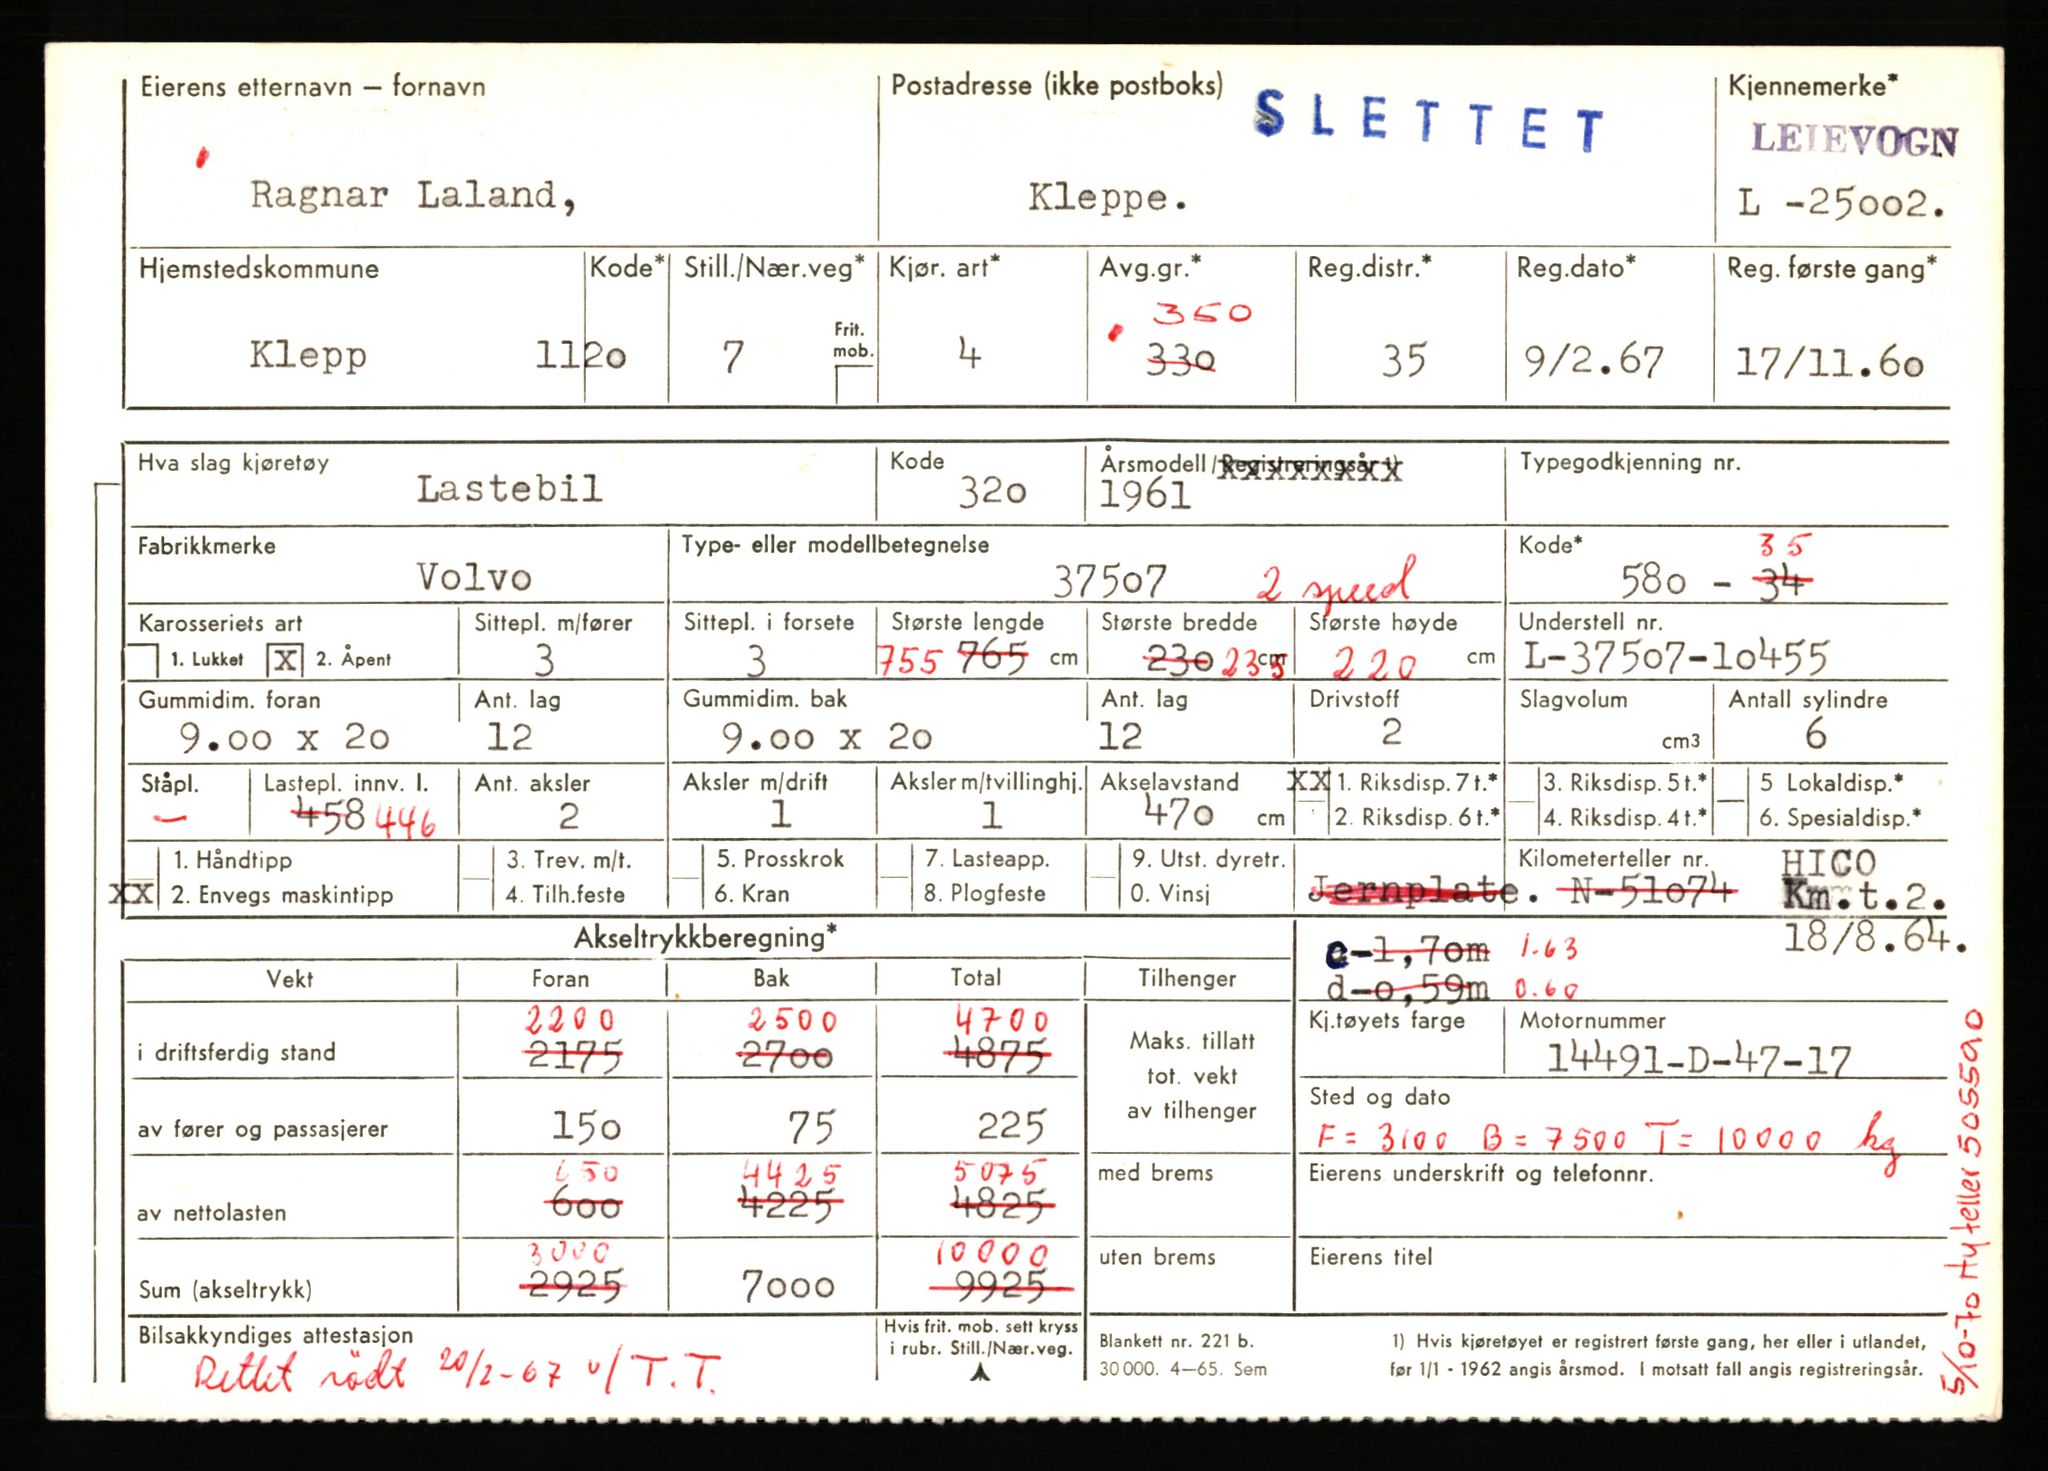 Eierens etternavn – fornavn
Postadresse (ikke postboks)
SLETTET
Kjennemerke*
LEIEVOGN
Ragnar Laland,
Kleppe.
L -25002.
Hjemstedskommune
Kode*
Still./Nær.veg*
Kjør. art*
Avg.gr.*
Reg.distr.*
Reg.dato*
Reg. første gang*
350
Klepp
1120
7
Frit. mob.
4
330
35
9/2.67
17/11.60
Hva slag kjøretøy
Lastebil
Kode
320
Årsmodell/Registreringsår 1)
1961
Typegodkjenning nr.
Fabrikkmerke
Volvo
Type- eller modellbetegnelse
37507 2 speed
Kode*
35
580 - 34
Karosseriets art
1. Lukket X 2. Åpent
Sittepl. m/fører
3
Sittepl. i forsete
3
Største lengde
755 765 cm
Største bredde
230 235 cm
Største høyde
220 cm
Understell nr.
L-37507-10455
Gummidim. foran
9.00 x 20
Ant. lag
12
Gummidim. bak
9.00 x 20
Ant. lag
12
Drivstoff
2
Slagvolum
cm3
Antall sylindre
6
Ståpl.
–
Lastepl. innv. l.
458 446
Ant. aksler
2
Aksler m/drift
1
Aksler m/tvillinghj.
1
Akselavstand
470 cm
XX 1. Riksdisp. 7 t.*
2. Riksdisp. 6 t.*
3. Riksdisp. 5 t.*
4. Riksdisp. 4 t.*
5 Lokaldisp.*
6. Spesialdisp.*
1. Håndtipp
XX 2. Envegs maskintipp
3. Trev. m/t.
4. Tilh.feste
5. Prosskrok
6. Kran
7. Lasteapp.
8. Plogfeste
9. Utst. dyretr.
0. Vinsj
Jernplate.
Kilometerteller nr.
N-51074
HICO
Km.t.2.
18/8.64.
Akseltrykkberegning*
c-1,70m 1.63
d-0,59m 0.60
Vekt
Foran
Bak
Total
Tilhenger
2200
2500
4700
i driftsferdig stand
2175
2700
4875
Maks. tillatt
tot. vekt
av tilhenger
Kj.tøyets farge
Motornummer
14491-D-47-17
av fører og passasjerer
150
75
225
Sted og dato
F = 3100 B = 7500 T = 10000 kg
650
4425
5075
av nettolasten
600
4225
4825
med brems
Eierens underskrift og telefonnr.
3000
10000
Sum (akseltrykk)
2925
7000
9925
uten brems
Eierens titel
Bilsakkyndiges attestasjon
Rettet rödt 20/2-67 u/ T.T.
Hvis frit. mob. sett kryss
i rubr. Still./Nær.veg.
Blankett nr. 221 b.
30 000. 4–65. Sem
1) Hvis kjøretøyet er registrert første gang, her eller i utlandet,
før 1/1 - 1962 angis årsmod. I motsatt fall angis registreringsår.
5/10-70 Hy teller 505590